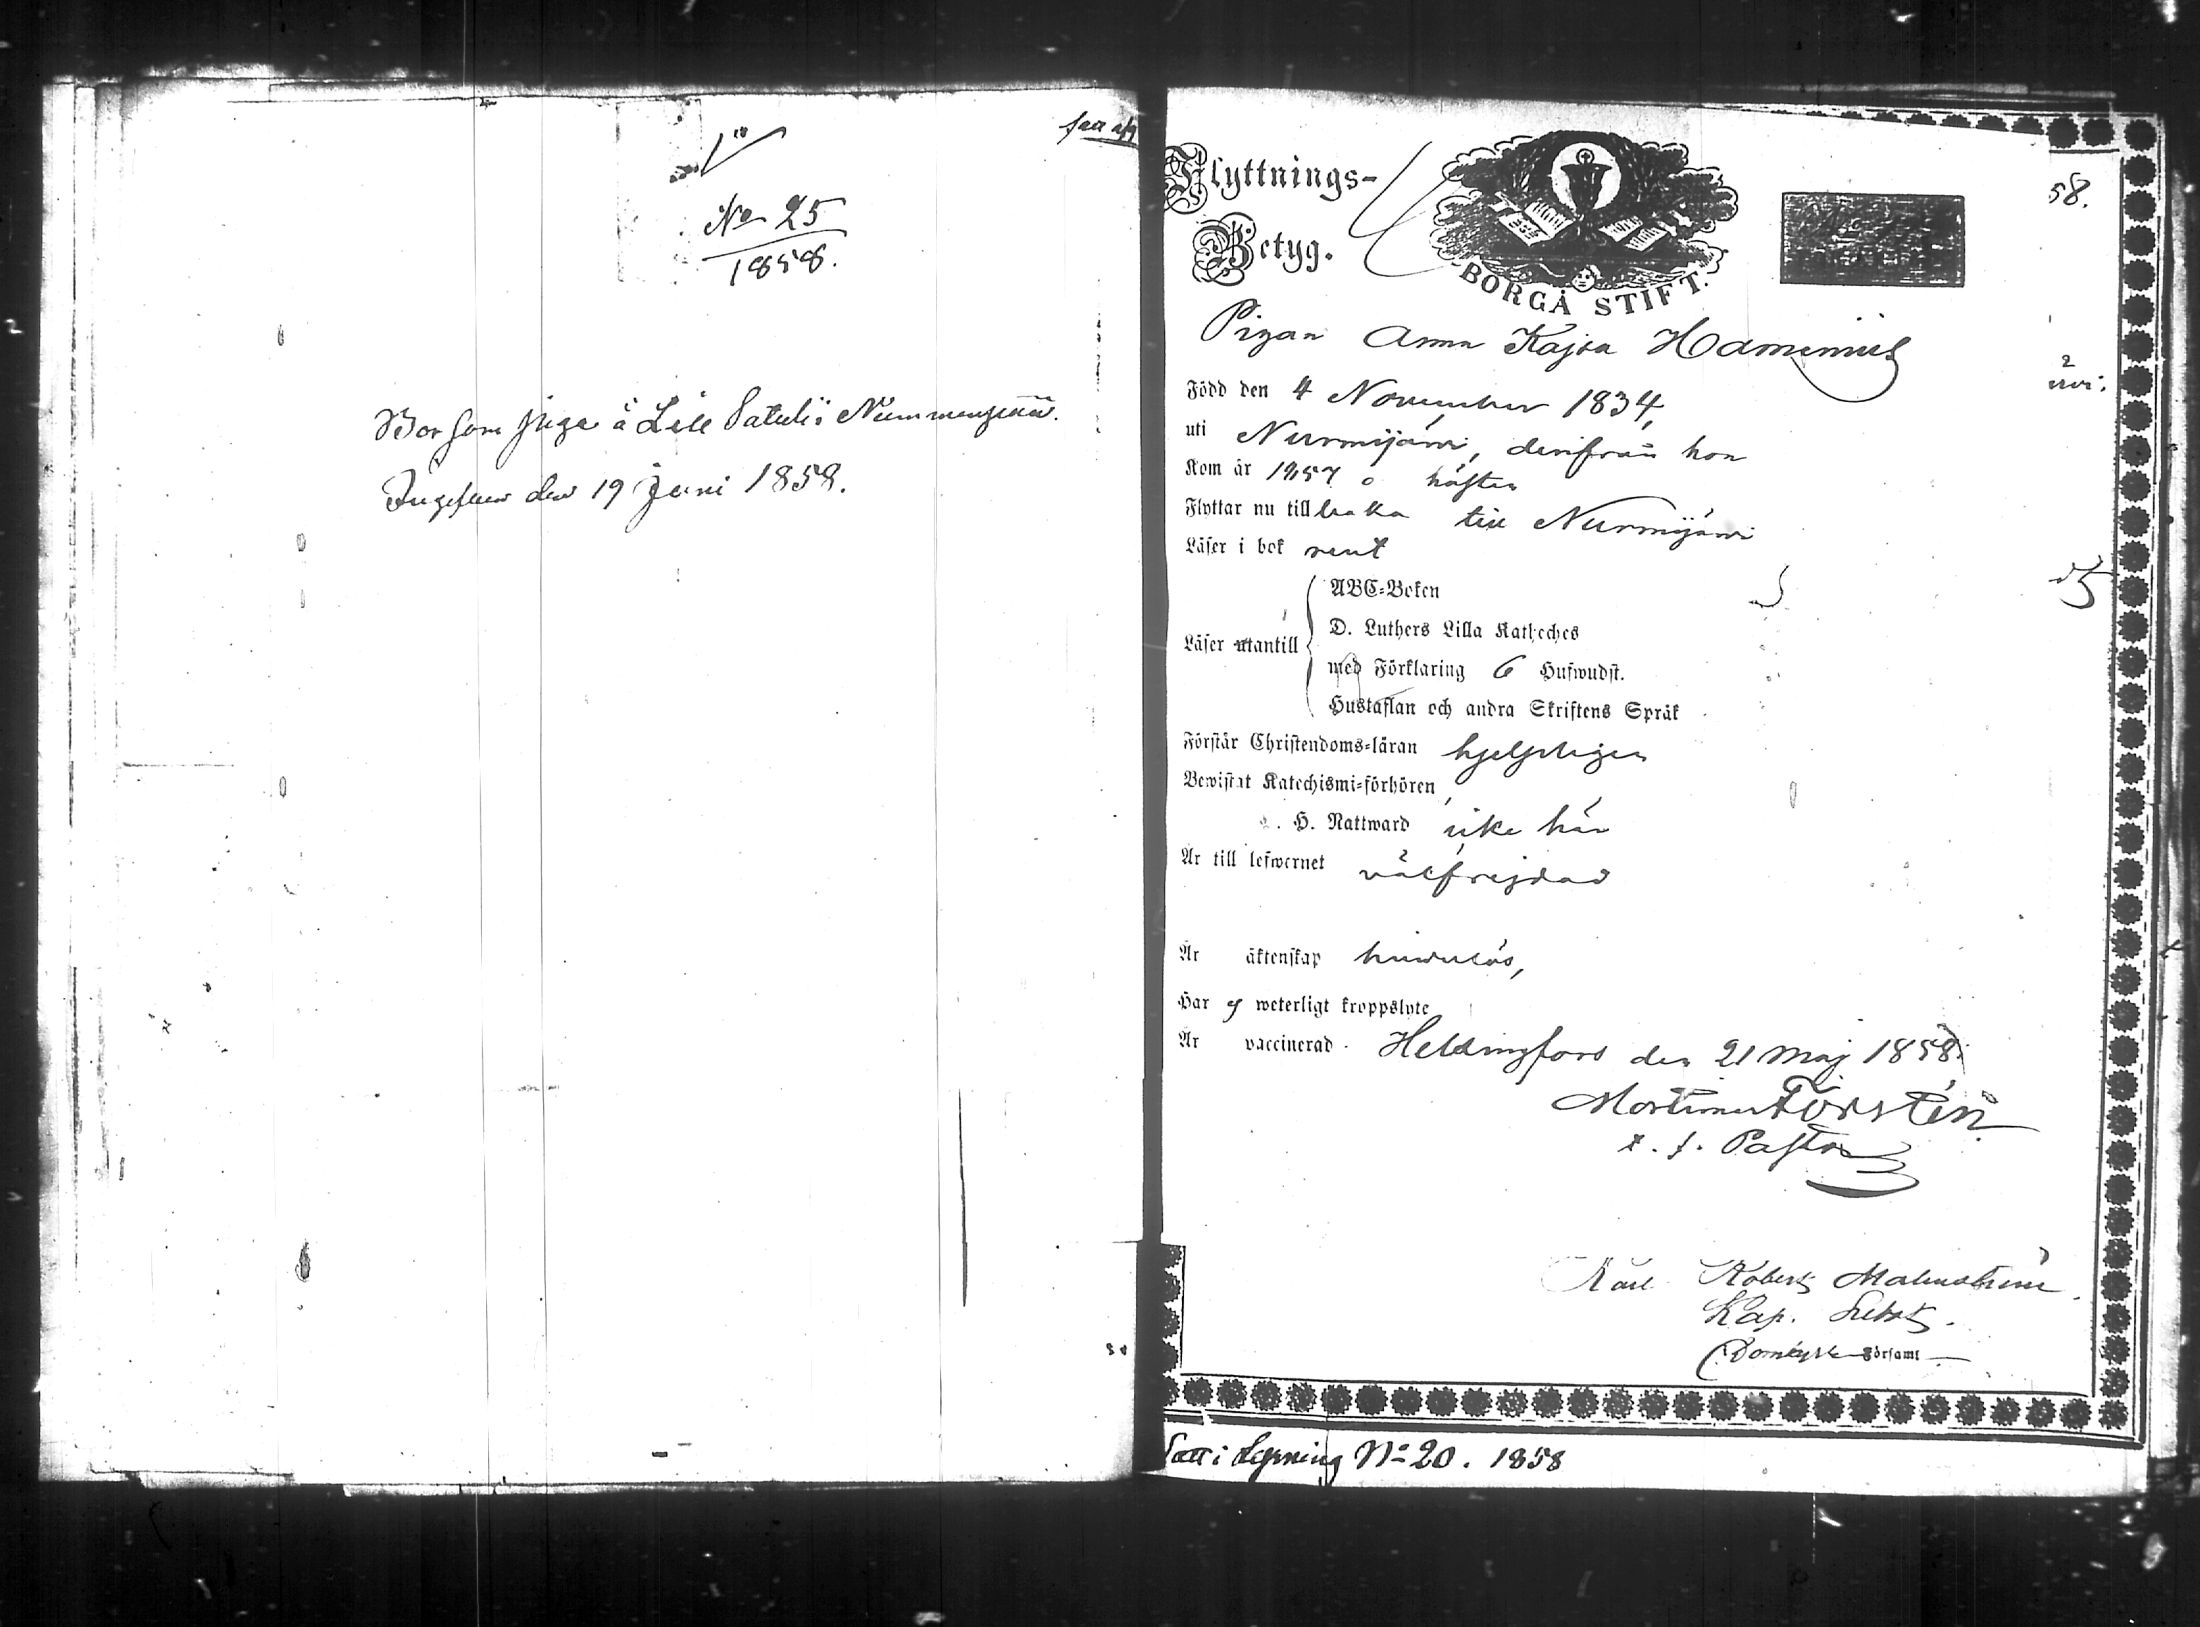 No 25
1858.
Bor som piga å Lill Nummenpää.
den 19 Juni 1858.
Flyttnings-
Betyg.
BORGÅ STIFT.
58.
Pigan Anna Kajsa
Född den 4 November 1834,
uti Nurmijärvi, derifrån hon
Kom år 1857 o hösten
Flyttar nu tillbaka till Nurmijärvi
Läser i bok rent
Läser utantill
ABC-Boken
D. Luthers Lilla Katheches
med Förklaring 6 Hufwudst.
Hustaflan och andra Skriftens Språk
Förstår Christendoms-läran hjelpligen
Bewistat Katechismi-förhören
H. Nattward icke här
Är till lefwernet välfrejdad
Är äktenskap hinderlös,
Har ej weterligt kroppslyte
Är vaccinerad. Helsingfors den 21 Maj 1858.
Mortimer Forstén
t. f. Pastor
Karl Robert Malmström
Kap.
Församl
i Lysning No 20. 1858